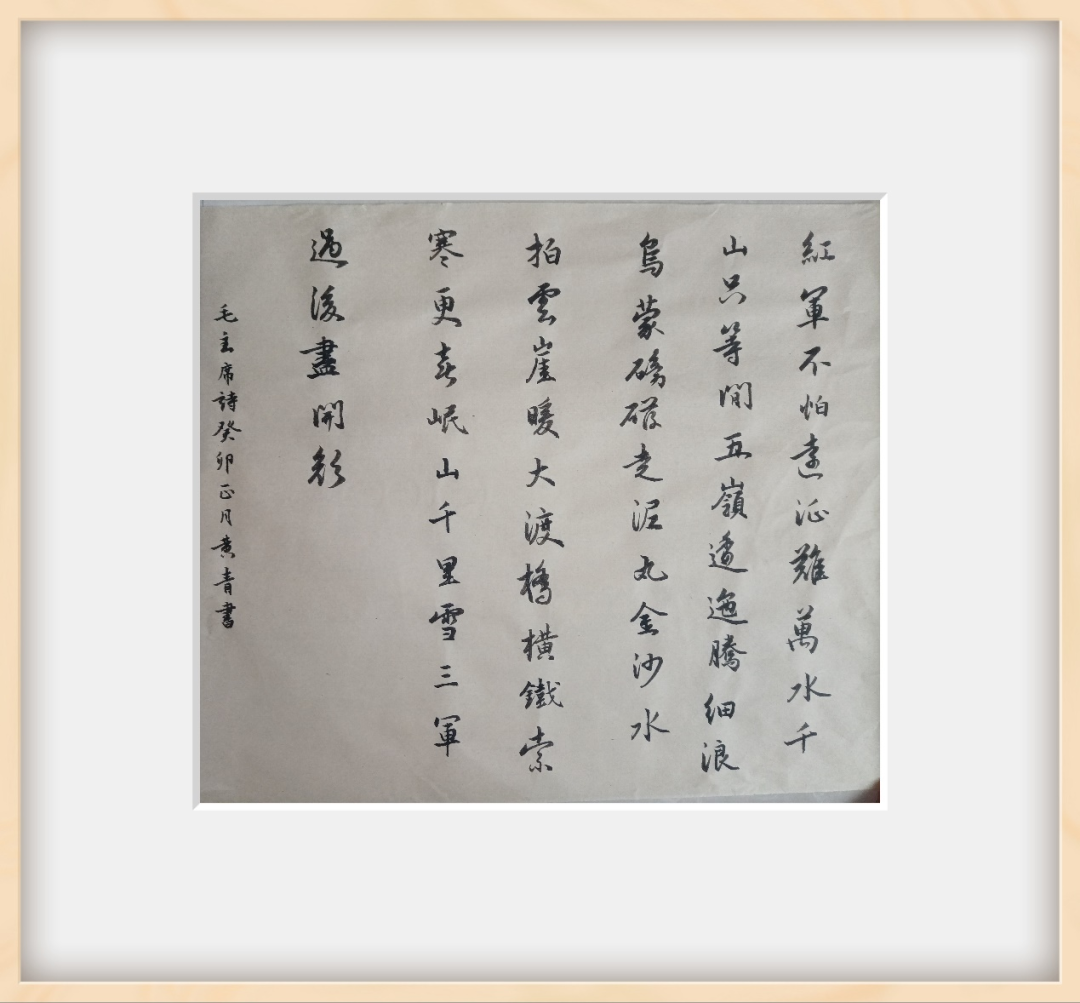 紅軍不怕遠征難萬水千
山只等閒五嶺逶迤騰細浪
烏蒙磅礴走泥丸金沙水
拍雲崖暖大渡橋橫鐵索
寒更喜岷山千里雪三軍
過後盡開顏
毛主席詩癸卯正月黄青書